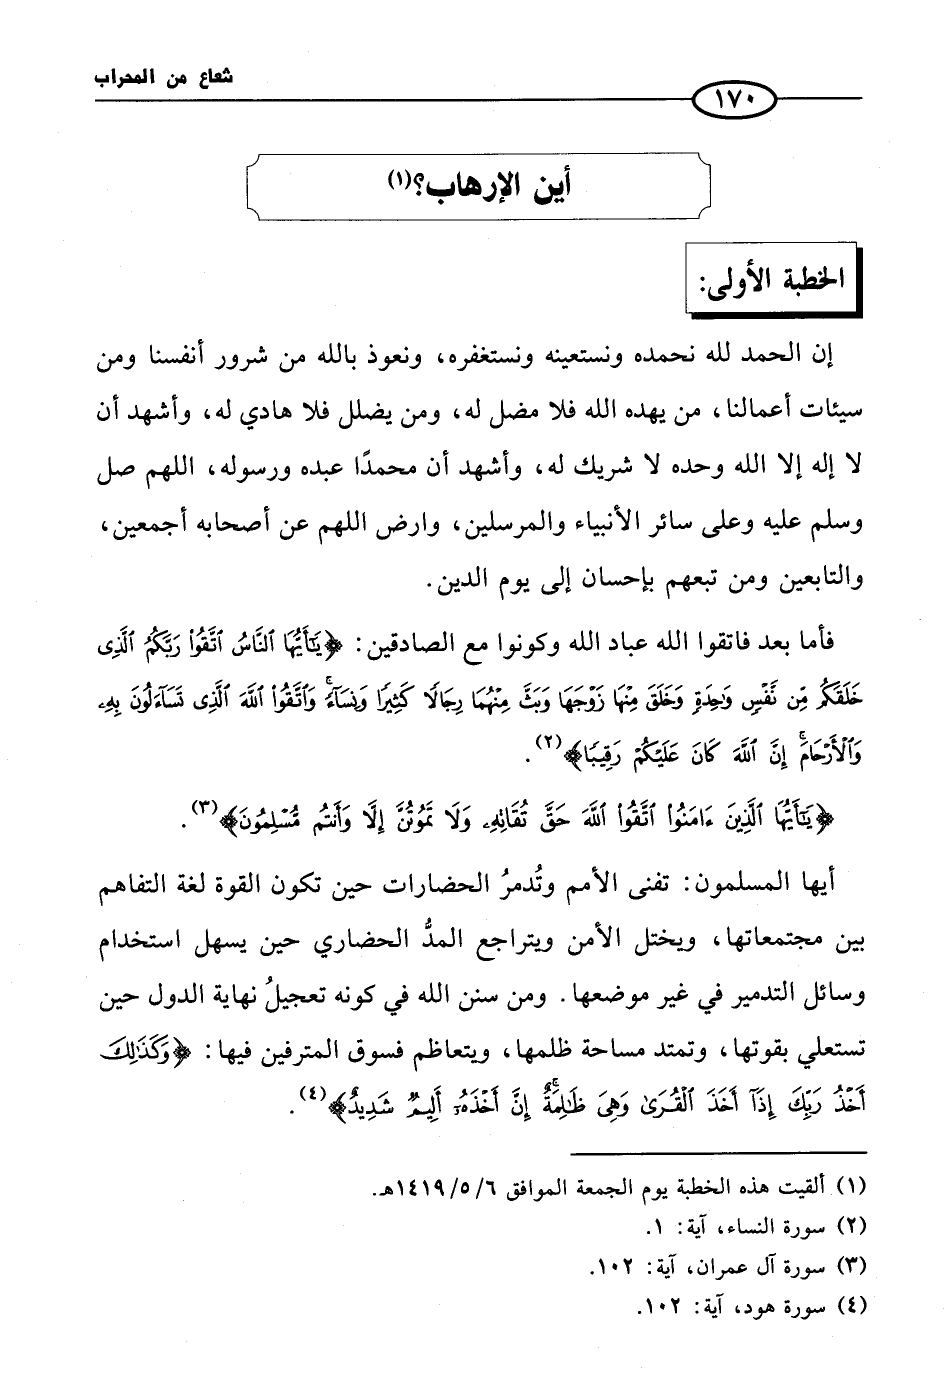 شعاع من المحراب
١٧٠
أين الإرهاب؟(١)
الخطبة الأولى:
إن الحمد لله نحمده ونستعينه ونستغفره، ونعوذ بالله من شرور أنفسنا ومن
سيئات أعمالنا، من يهده الله فلا مضل له، ومن يضلل فلا هادي له، وأشهد أن
لا إله إلا الله وحده لا شريك له، وأشهد أن محمدًا عبده ورسوله، اللهم صل
وسلم عليه وعلى سائر الأنبياء والمرسلين، وارض اللهم عن أصحابه أجمعين،
والتابعين ومن تبعهم بإحسان إلى يوم الدين.
فأما بعد فاتقوا الله عباد الله وكونوا مع الصادقين: ﴿يَٰٓأَيُّهَا ٱلنَّاسُ ٱتَّقُوا۟ رَبَّكُمُ ٱلَّذِى
خَلَقَكُم مِّن نَّفْسٍ وَٰحِدَةٍ وَخَلَقَ مِنْهَا زَوْجَهَا وَبَثَّ مِنْهُمَا رِجَالًا كَثِيرًا وَنِسَآءً ۚ وَٱتَّقُوا۟ ٱللَّهَ ٱلَّذِى تَسَآءَلُونَ بِهِۦ
وَٱلْأَرْحَامَ ۚ إِنَّ ٱللَّهَ كَانَ عَلَيْكُمْ رَقِيبًا﴾(٢).
﴿يَٰٓأَيُّهَا ٱلَّذِينَ ءَامَنُوا۟ ٱتَّقُوا۟ ٱللَّهَ حَقَّ تُقَاتِهِۦ وَلَا تَمُوتُنَّ إِلَّا وَأَنتُم مُّسْلِمُونَ﴾(٣).
أيها المسلمون: تفنى الأمم وتُدمرُ الحضارات حين تكون القوة لغة التفاهم
بين مجتمعاتها، ويختل الأمن ويتراجع المدُّ الحضاري حين يسهل استخدام
وسائل التدمير في غير موضعها. ومن سنن الله في كونه تعجيلُ نهاية الدول حين
تستعلي بقوتها، وتمتد مساحة ظلمها، ويتعاظم فسوق المترفين فيها: ﴿وَكَذَٰلِكَ
أَخْذُ رَبِّكَ إِذَآ أَخَذَ ٱلْقُرَىٰ وَهِىَ ظَٰلِمَةٌ ۚ إِنَّ أَخْذَهُۥٓ أَلِيمٌ شَدِيدٌ﴾(٤).
(١) ألقيت هذه الخطبة يوم الجمعة الموافق ١٤١٩/٥/٦هـ.
(٢) سورة النساء، آية: ١.
(٣) سورة آل عمران، آية: ١٠٢.
(٤) سورة هود، آية: ١٠٢.